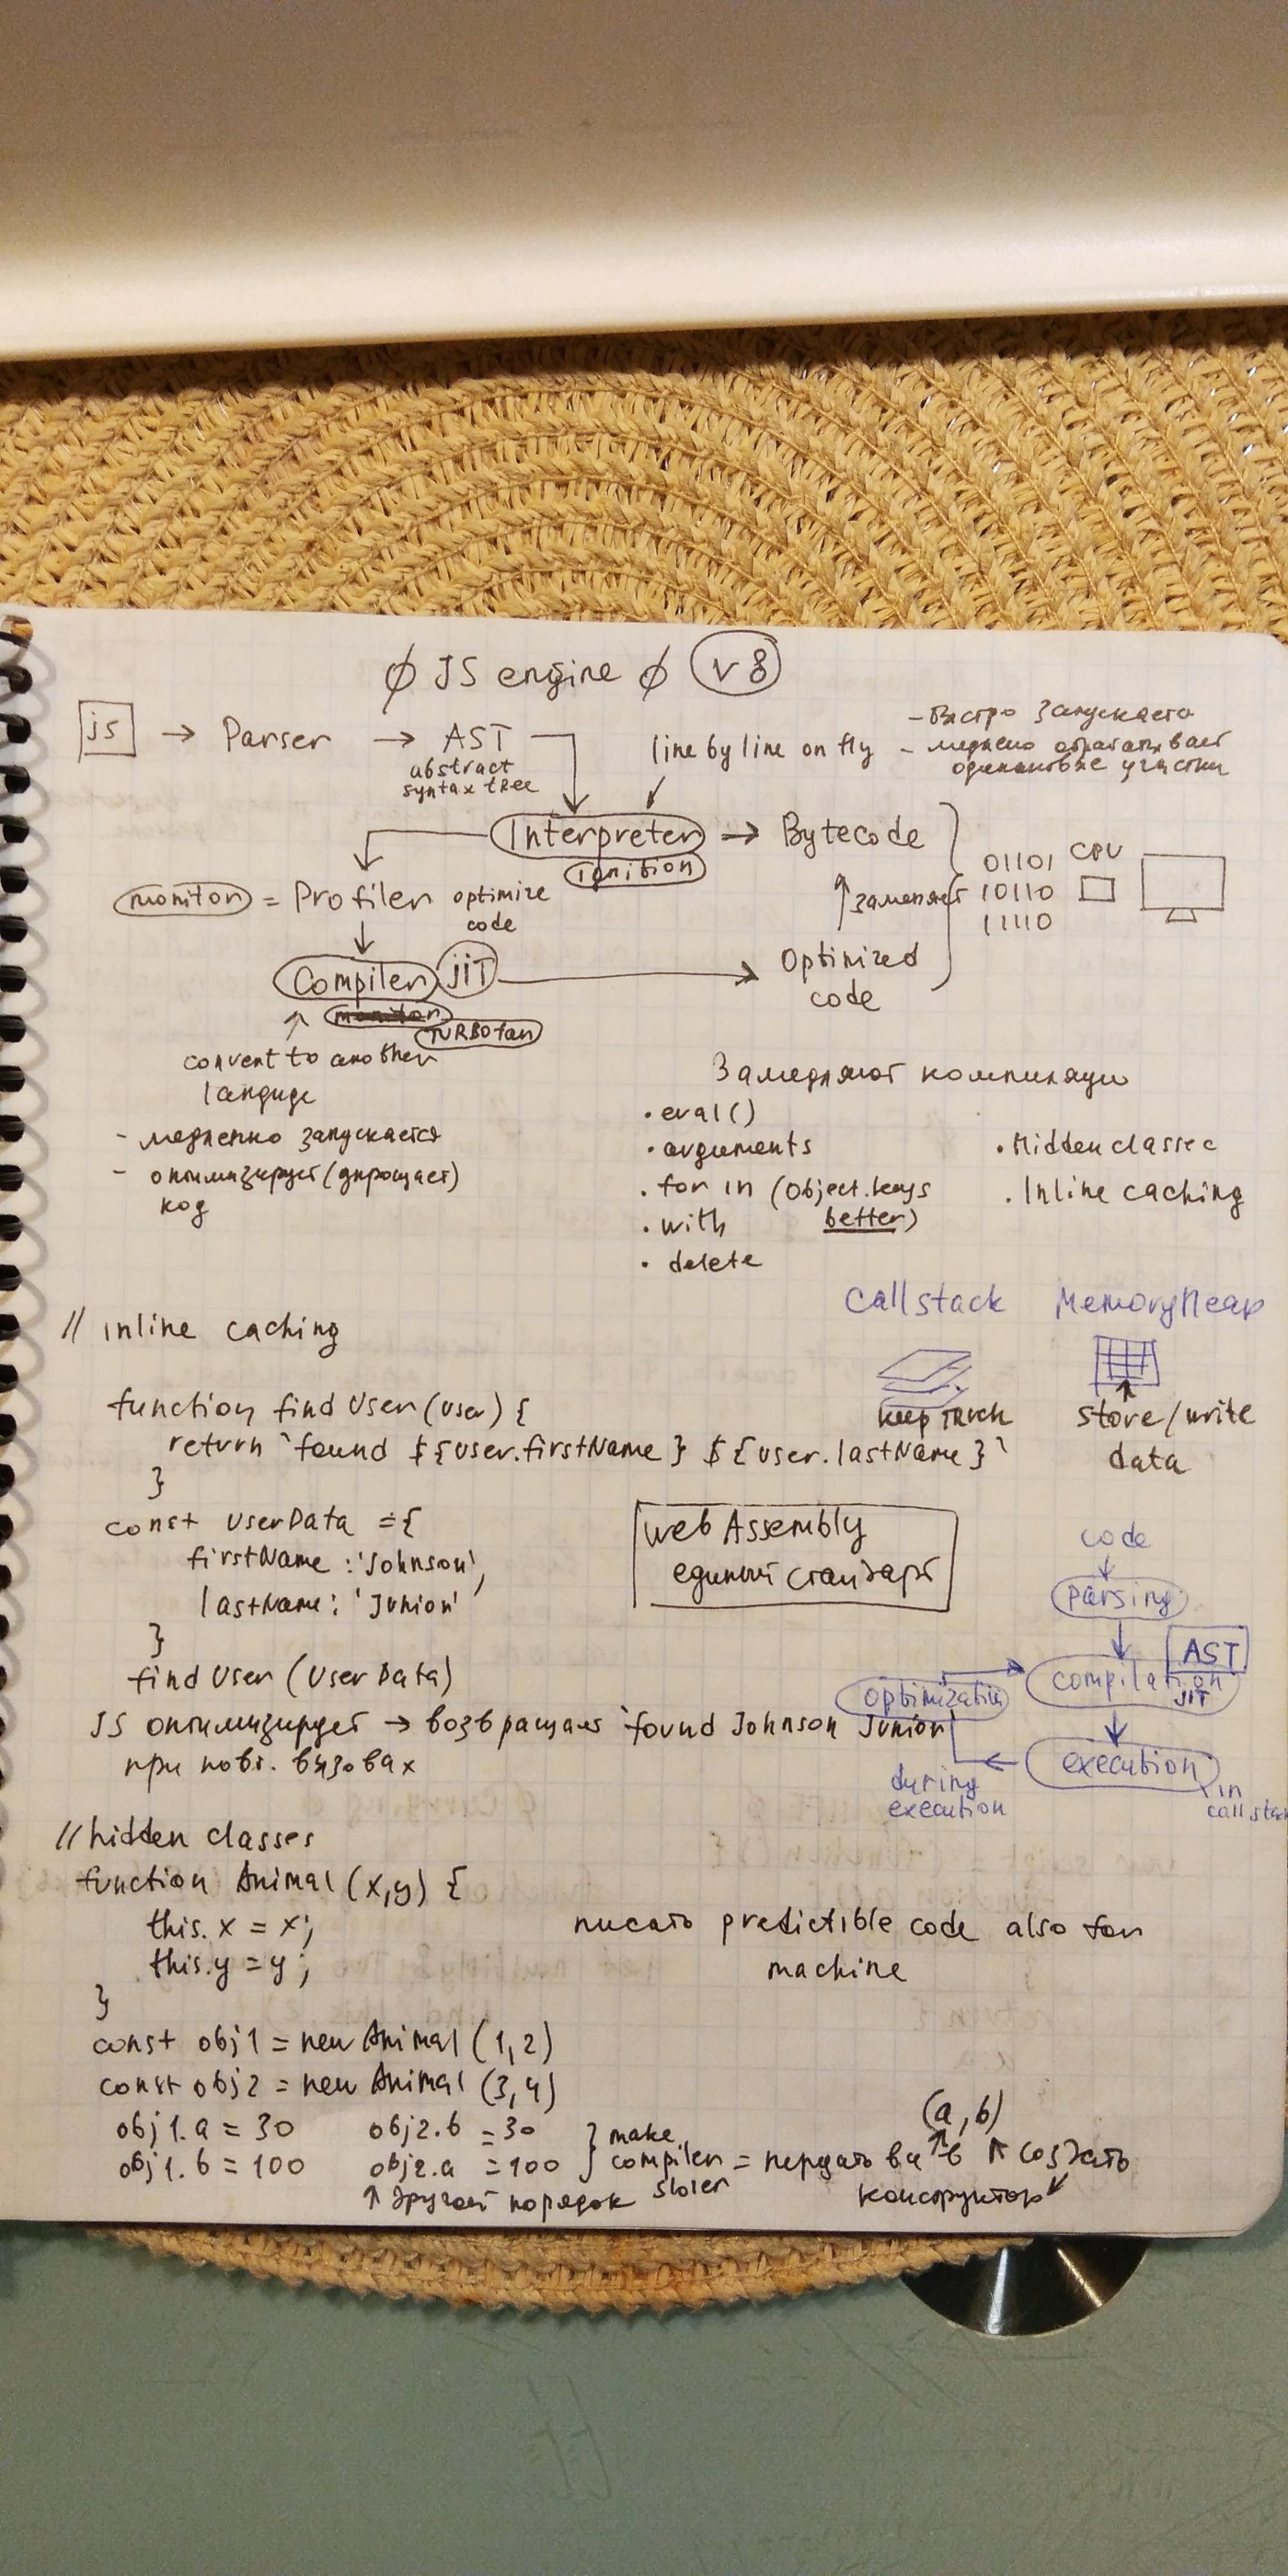 ∅ JS engine ∅ v8
js → Parser → AST
abstract
syntax tree
line by line on fly
- быстро запускается
- медлено обрабатывает
одинаковые участки
Interpreter → Bytecode
ignition
monitor = Profiler optimize
code
заменяет
01101
10110
11110
CPU
Compiler JIT
TURBOfan
Optimized
code
convert to another
languge
- медленно запускается
- оптимизирует (упрощает)
код
Замедляют компиляцию
• eval()
• arguments
• for in (Object.keys
better)
• with
• delete
• Hidden classec
• Inline caching
Call stack
keep track
Memory Heap
store/write
data
// inline caching
function find User (user) {
return `found ${user.firstName} ${user.lastName}`
}
const UserData = {
firstName: 'Johnson',
lastName: 'Junior'
}
find User (User Data)
JS оптимизирует → возвращает `found Johnson Junior
при повт. вызовах
web Assembly
единый стандарт
code
parsing
AST
compilation
JIT
optimization
execution
in
call stack
during
execution
// hidden classes
function Animal (x,y) {
this.x = x;
this.y = y;
}
const obj1 = new Animal (1,2)
const obj2 = new Animal (3,4)
obj1.a = 30 obj2.b = 30
obj1.b = 100 obj2.a = 100
↑ другой порядок
make
compiler
(a, b)
создать
конструктор
писать predictible code also for
machine